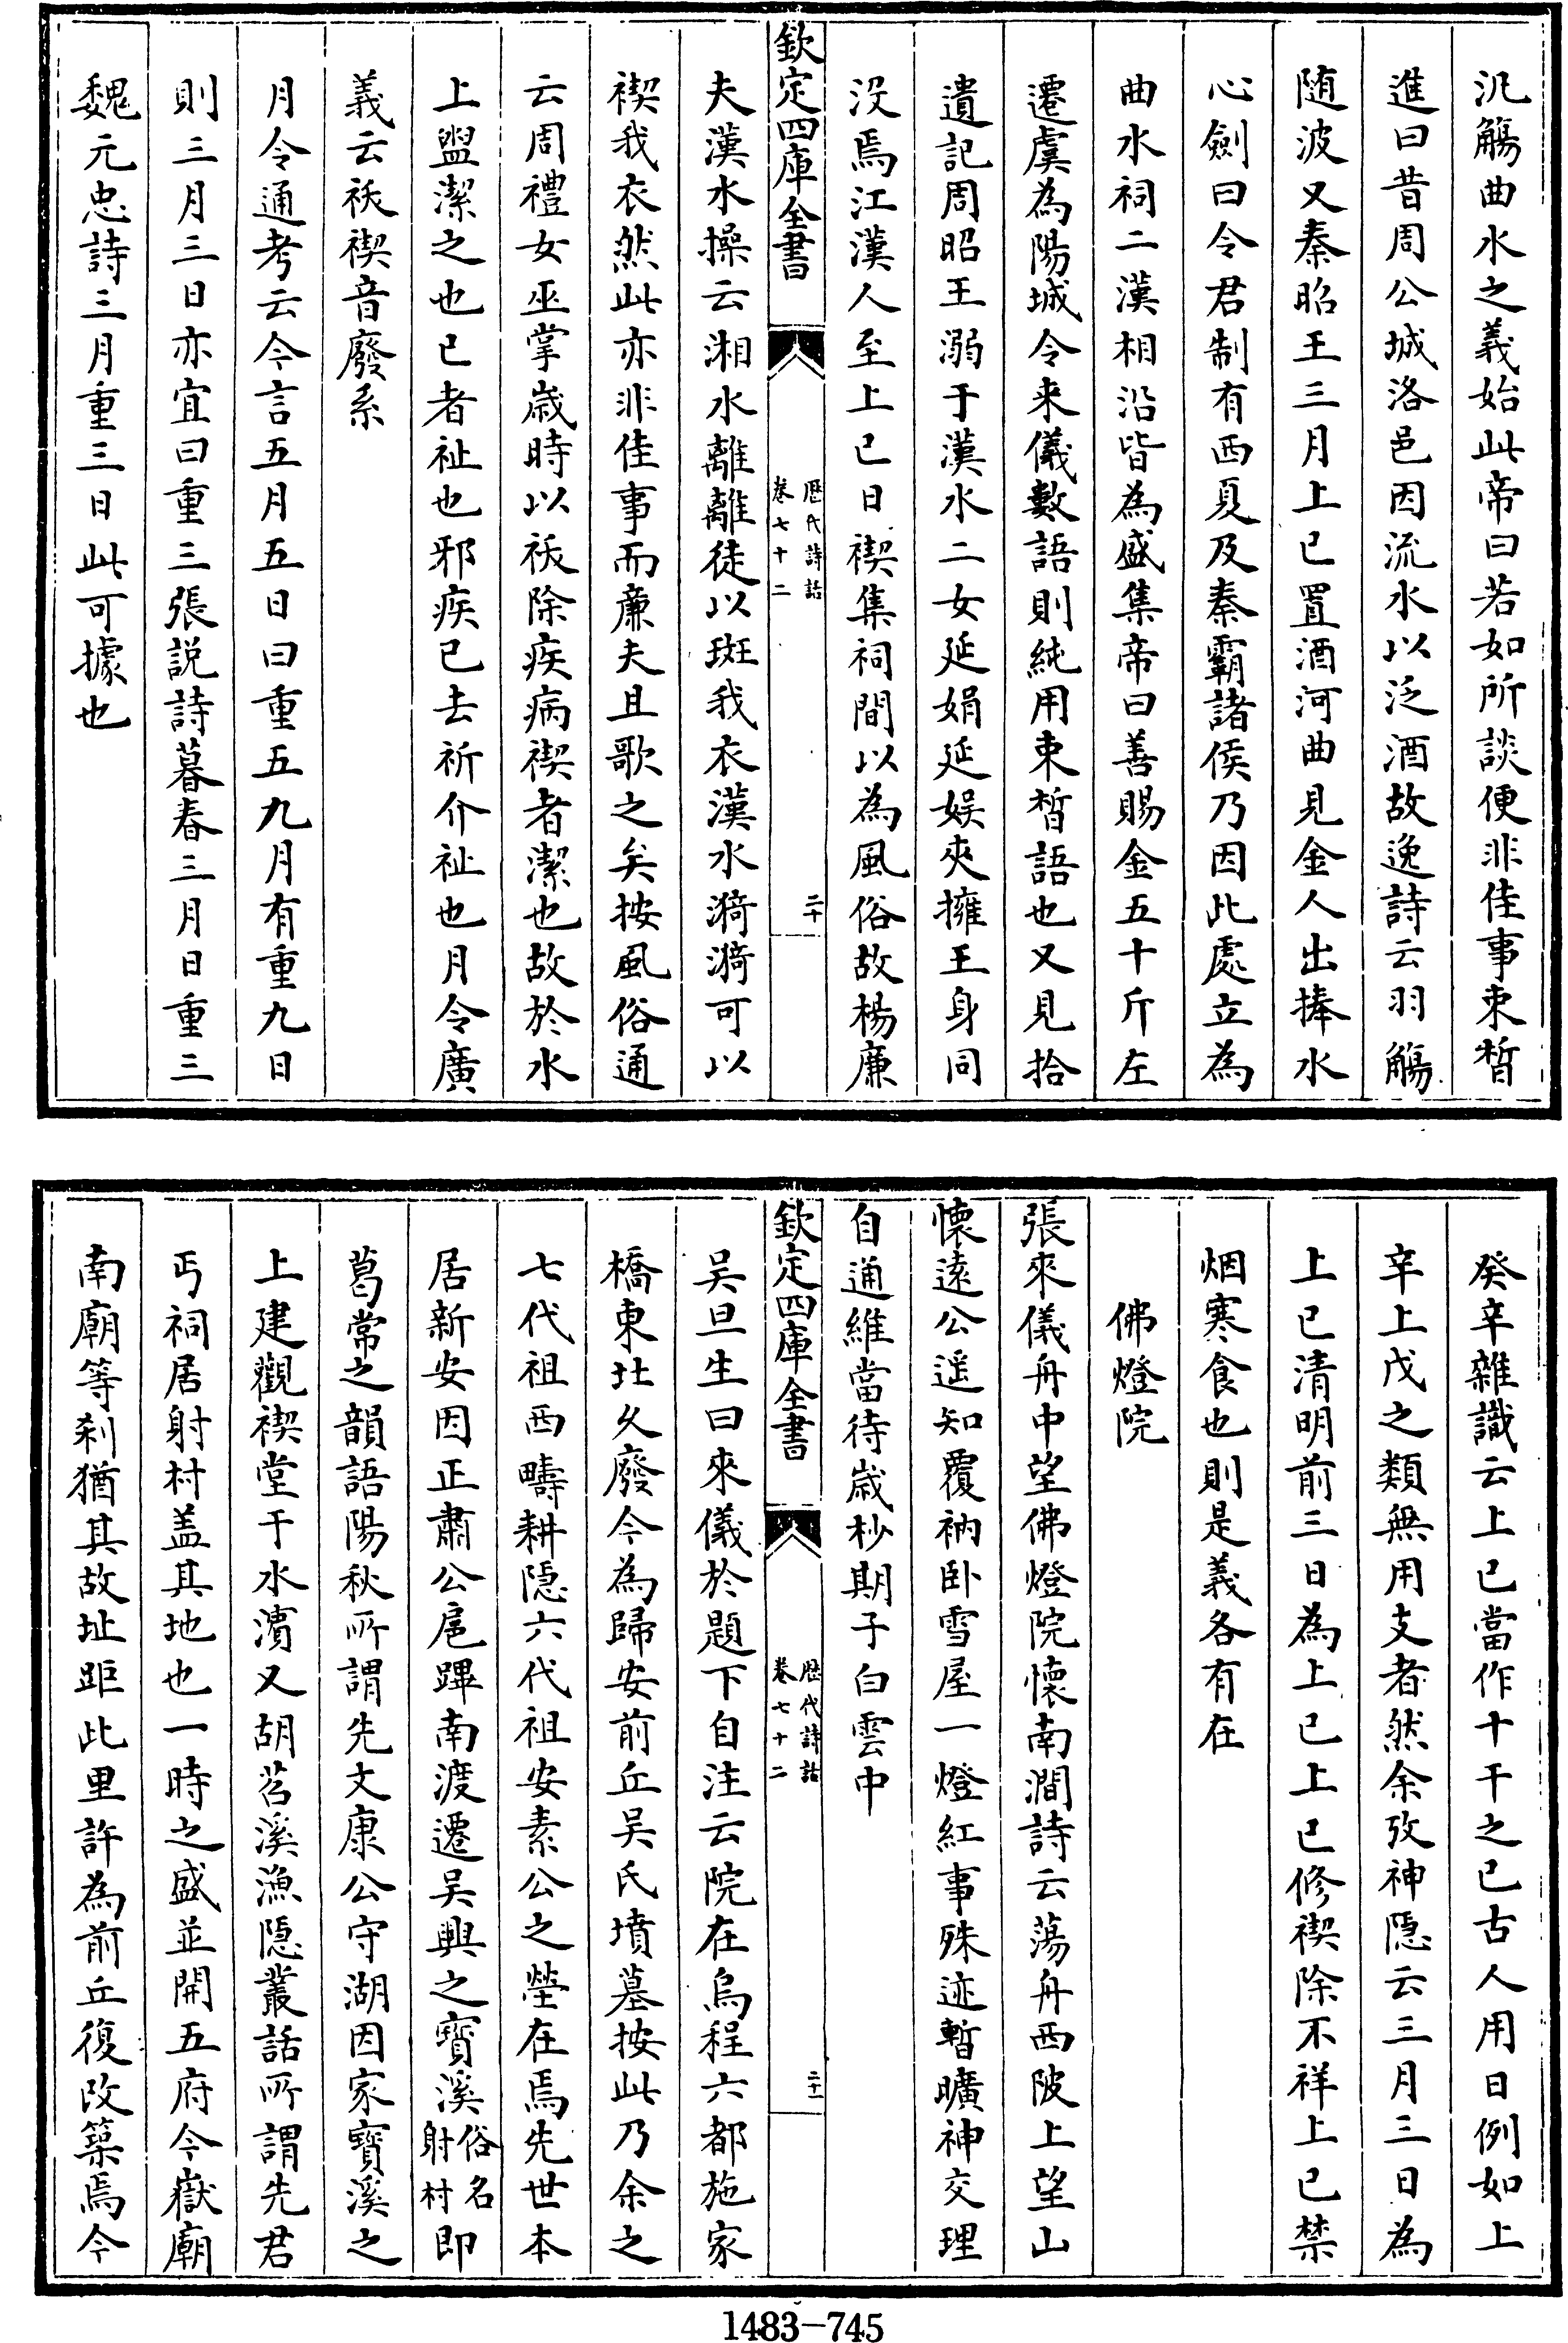 汎觴曲水之義始此帝曰若如所談便非佳事束晳
進曰昔周公城洛邑因流水以泛酒故逸詩云羽觴
随波又秦昭王三月上巳置酒河曲見金人出捧水
心劍曰令君制有西夏及秦霸諸侯乃因此處立為
曲水祠二漢相沿皆為盛集帝曰善賜金五十斤左
遷虞為陽城令来儀數語則純用束晳語也又見拾
遺記周昭王溺于漢水二女延娟延娱夾擁王身同
沒焉江漢人至上巳日禊集祠間以為風俗故楊廉
欽定四庫全書
歴代詩話
卷七十二
二十
夫漢水操云湘水離離徒以斑我衣漢水漪漪可以
禊我衣然此亦非佳事而亷夫且歌之矣按風俗通
云周禮女巫掌嵗時以祓除疾病禊者潔也故於水
上盥潔之也巳者祉也邪疾已去祈介祉也月令廣
義云祓禊音廢系
月令通考云今言五月五日曰重五九月有重九日
則三月三日亦宜曰重三張説詩暮春三月日重三
魏元忠詩三月重三日此可據也
癸辛雜識云上巳當作十干之巳古人用日例如上
辛上戊之類無用支者然余攷神隱云三月三日為
上巳清明前三日為上巳上巳修禊除不祥上巳禁
烟寒食也則是義各有在
佛燈院
張來儀舟中望佛燈院懐南澗詩云蕩舟西陂上望山
懐遠公遥知覆衲卧雪屋一燈紅事殊迹暫曠神交理
自通維當待嵗杪期子白雲中
欽定四庫全書
歴代詩話
卷七十二
二十一
吴旦生曰來儀於題下自注云院在烏程六都施家
橋東北久廢今為歸安前丘吴氏墳墓按此乃余之
七代祖西疇耕隱六代祖安素公之塋在焉先世本
居新安因正肅公扈蹕南渡遷吴興之寳溪俗名射村即
葛常之韻語陽秋所謂先文康公守湖因家寳溪之
上建觀禊堂于水濆又胡苕溪漁隱叢話所謂先君
丐祠居射村盖其地也一時之盛並開五府今嶽廟
南廟等刹猶其故址距此里許為前丘復改築焉今
1483-745